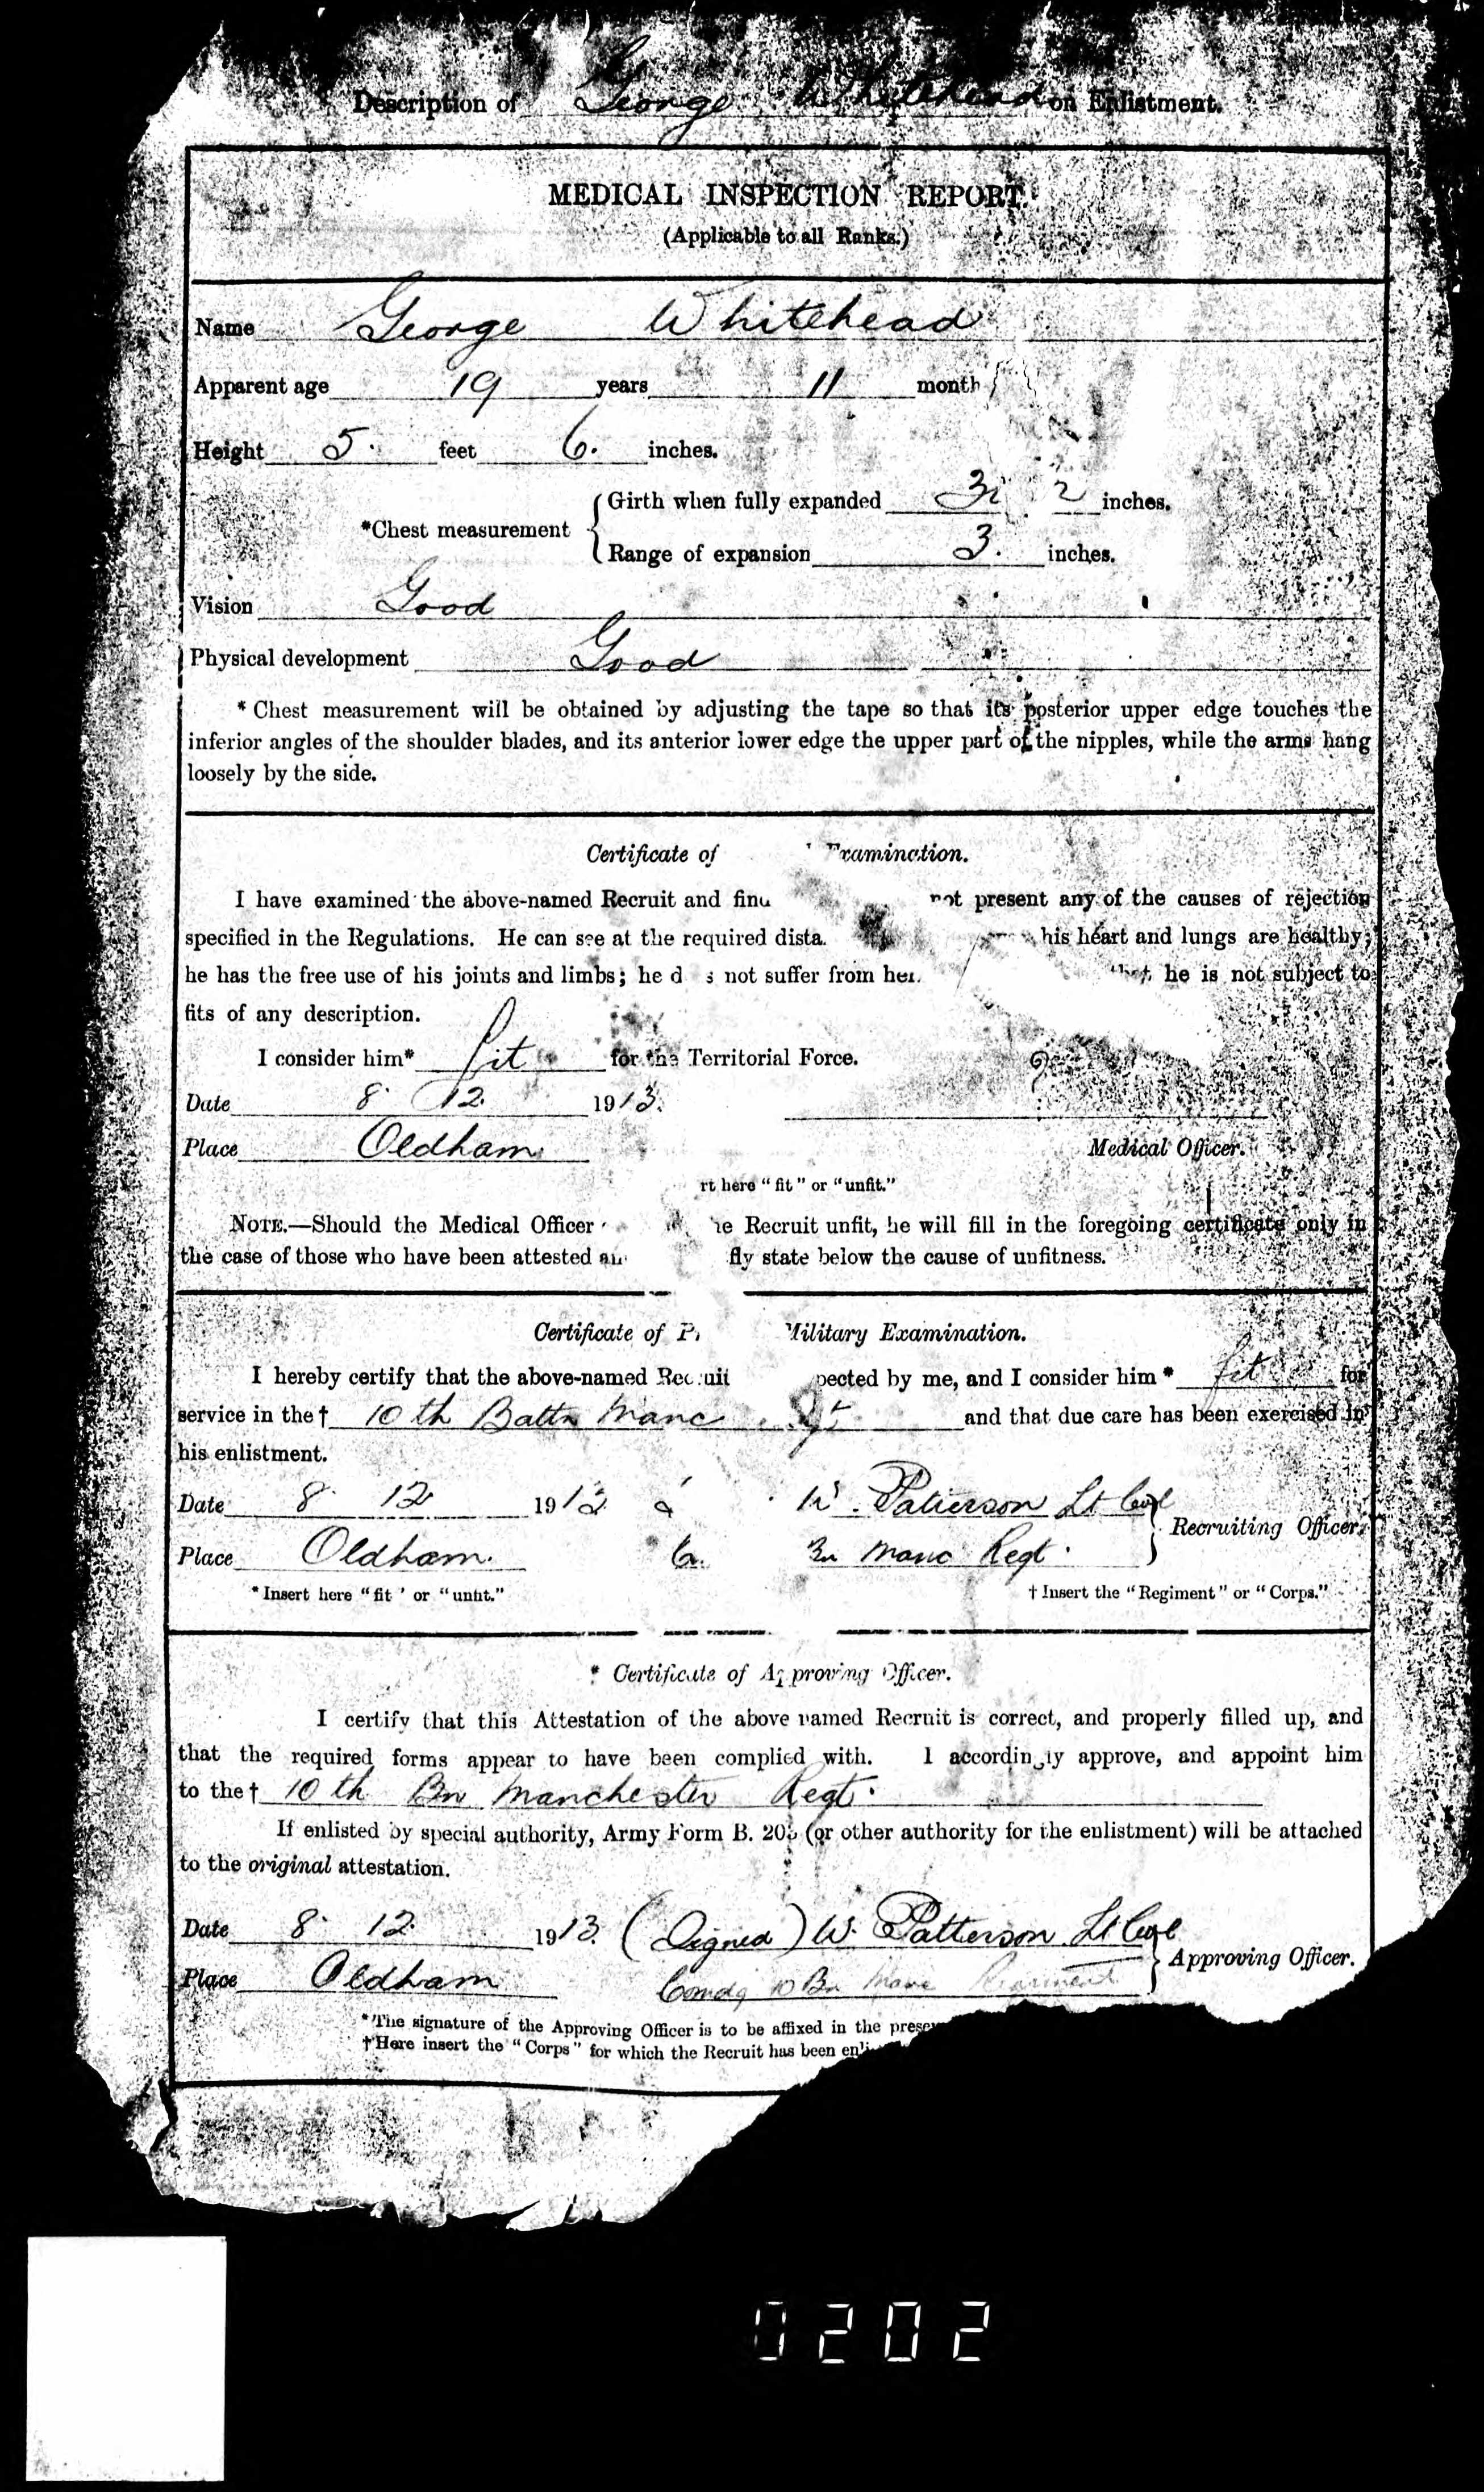 Description of George Whitehead on Enlistment.
MEDICAL INSPECTION REPORT.
(Applicable to all Ranks.)
Name George Whitehead
Apparent age 19 years 11 month
Height 5. feet 6. inches.
Girth when fully expanded inches.
*Chest measurement
Range of expansion 3. inches.
Vision Good
Physical development Good
* Chest measurement will be obtained by adjusting the tape so that its posterior upper edge touches the
inferior angles of the shoulder blades, and its anterior lower edge the upper part of the nipples, while the arms hang
loosely by the side.
Certificate of Examination.
I have examined the above-named Recruit and find not present any of the causes of rejection
specified in the Regulations. He can see at the required his heart and lungs are healthy;
he has the free use of his joints and limbs; he does not suffer from he is not subject to
fits of any description.
I consider him* fit for the Territorial Force.
Date 8. 12. 1913.
Place Oldham
Medical Officer.
here "fit" or "unfit."
NOTE.—Should the Medical Officer Recruit unfit, he will fill in the foregoing certificate only in
the case of those who have been attested state below the cause of unfitness.
Certificate of Military Examination.
I hereby certify that the above-named Recruit by me, and I consider him* fit for
service in the† 10th Battn Manc and that due care has been exercised in
his enlistment.
Date 8. 12 1913 W. Patterson Lt Col
Recruiting Officer.
Place Oldham. Manc Regt.
*Insert here "fit" or "unfit." † Insert the "Regiment" or "Corps."
* Certificate of Approving Officer.
I certify that this Attestation of the above named Recruit is correct, and properly filled up, and
that the required forms appear to have been complied with. I accordingly approve, and appoint him
to the† 10th Bn Manchester Regt.
If enlisted by special authority, Army Form B. 203 (or other authority for the enlistment) will be attached
to the original attestation.
Date 8. 12. 1913. (Signed) W. Patterson Lt Col
Approving Officer.
Place Oldham Comdg 10 Bn Manc Regiment
*The signature of the Approving Officer is to be affixed in the
†Here insert the "Corps" for which the Recruit has been
0202